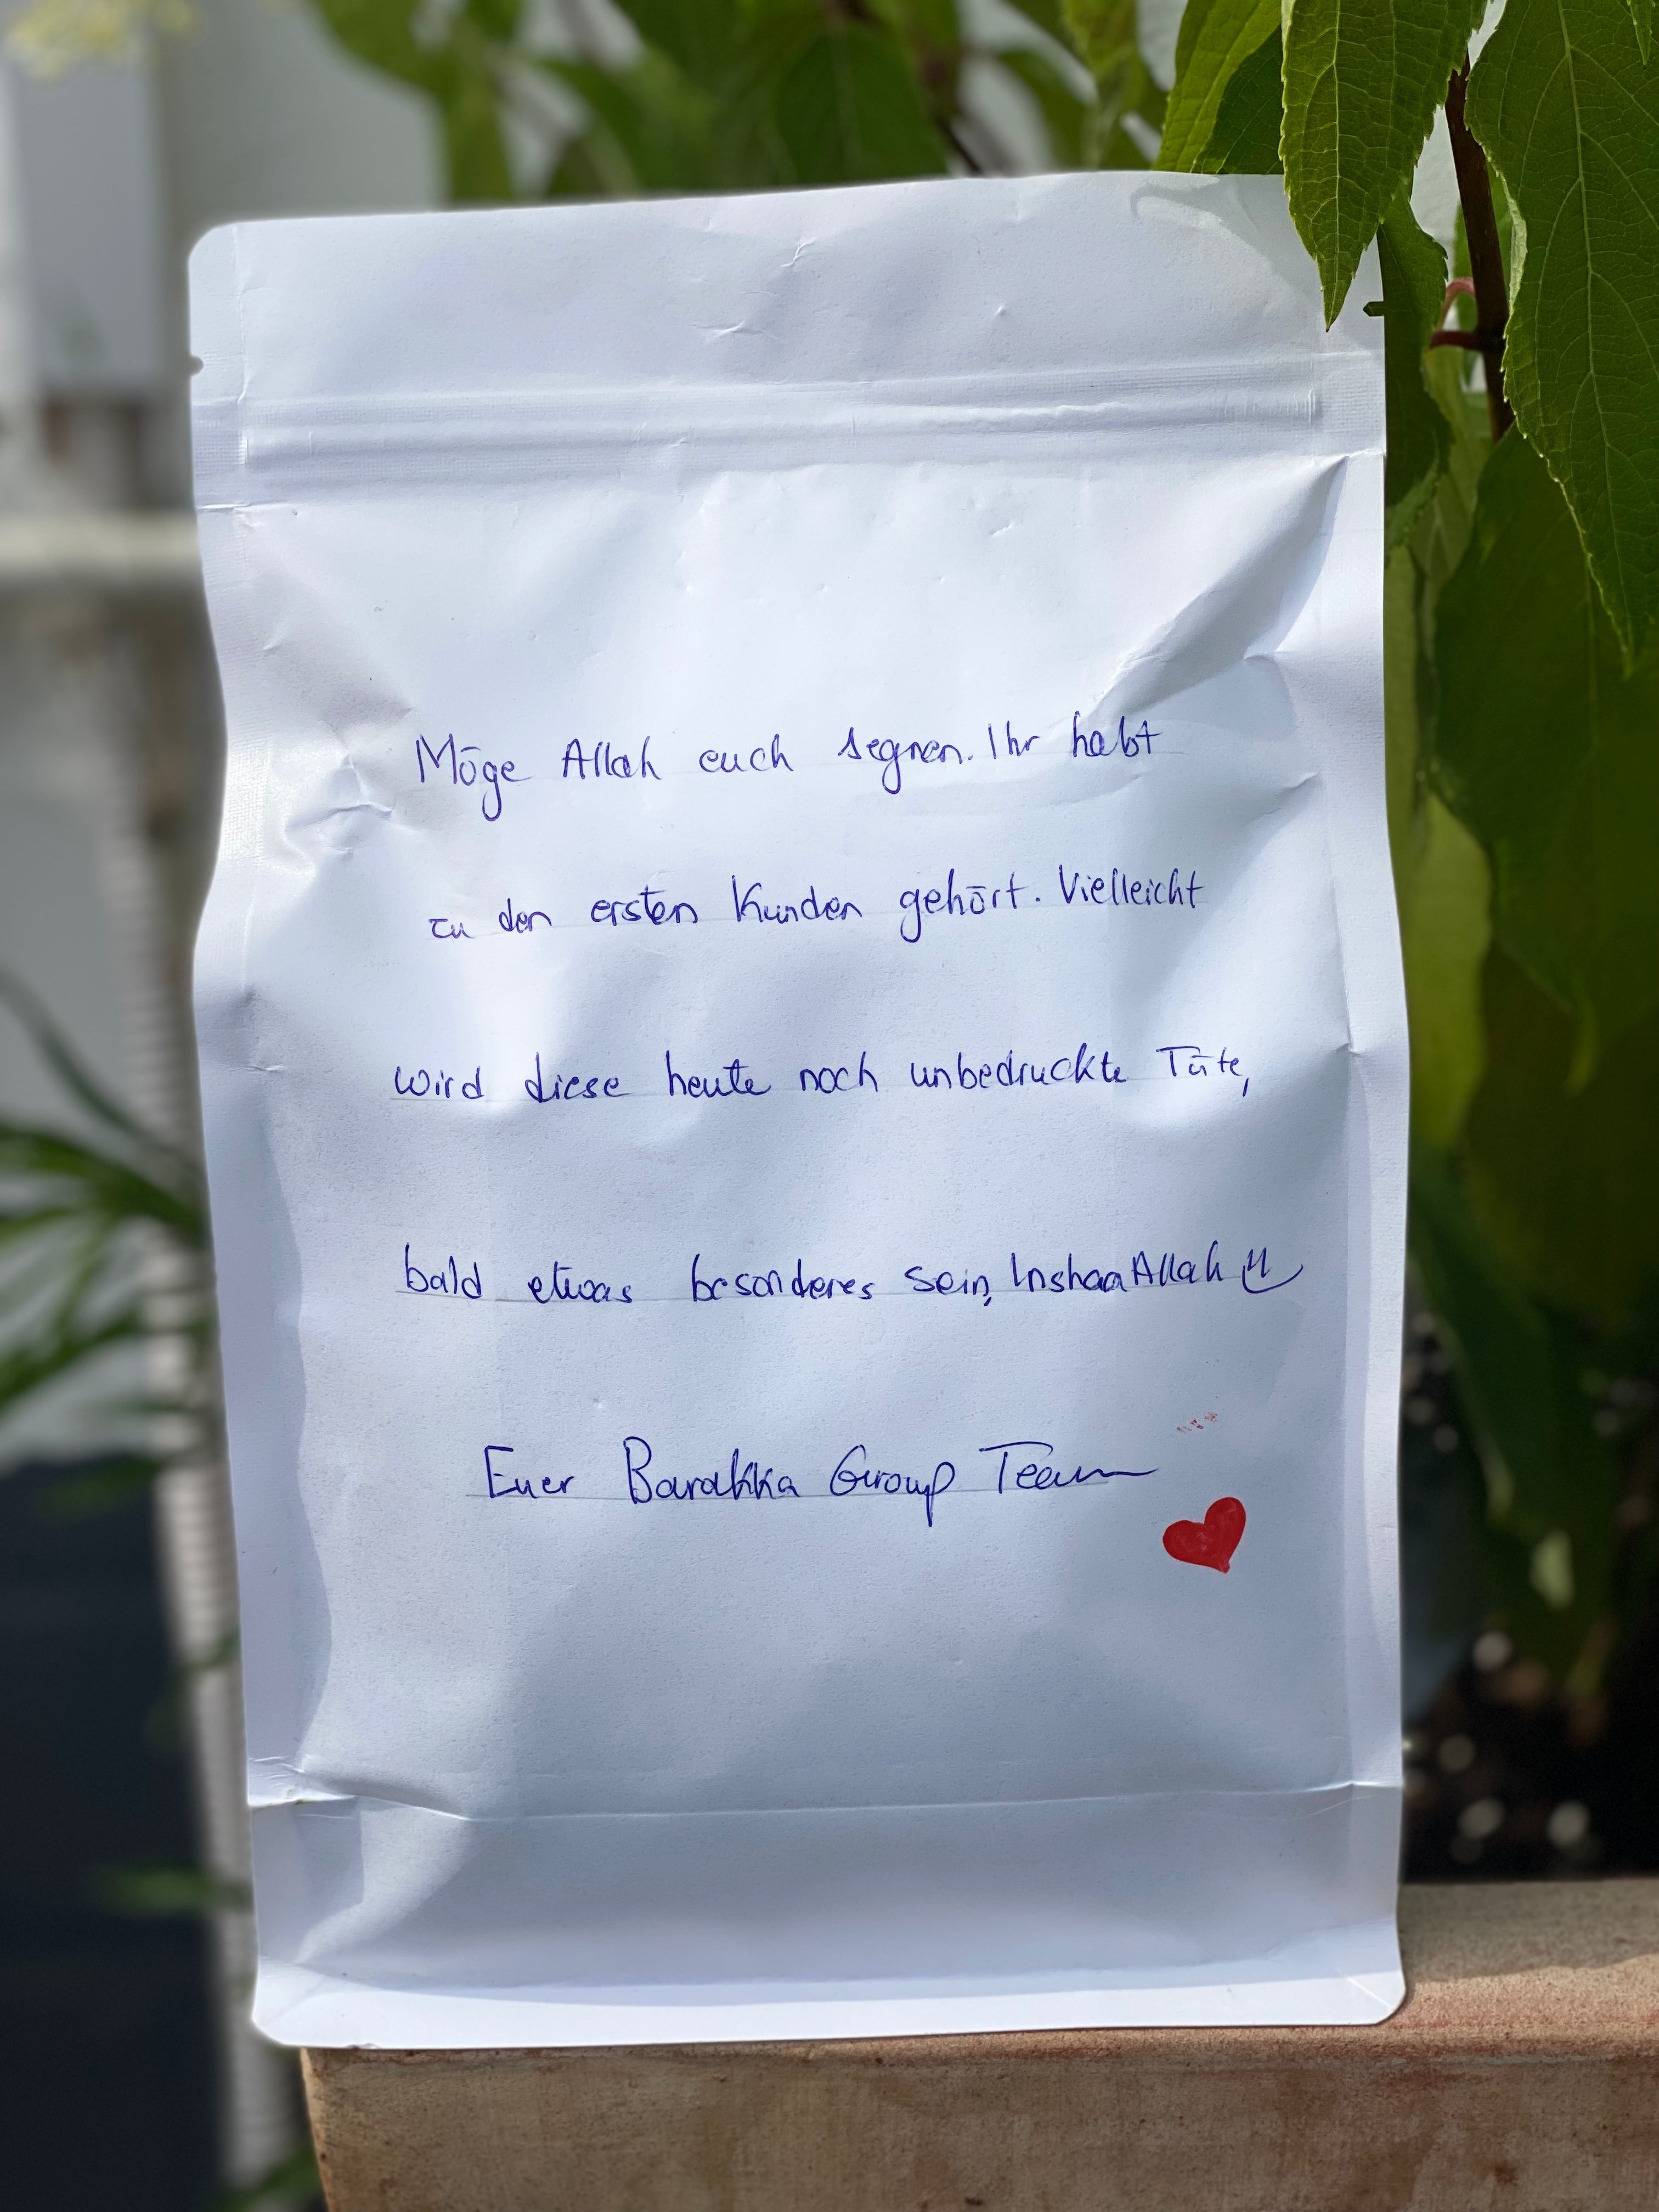 Möge Allah euch segnen. Ihr habt
zu den ersten Kunden gehört. Vielleicht
wird diese heute noch unbedruckte Tüte,
bald etwas besonderes sein, InshaaAllah
Euer Barakka Group Team